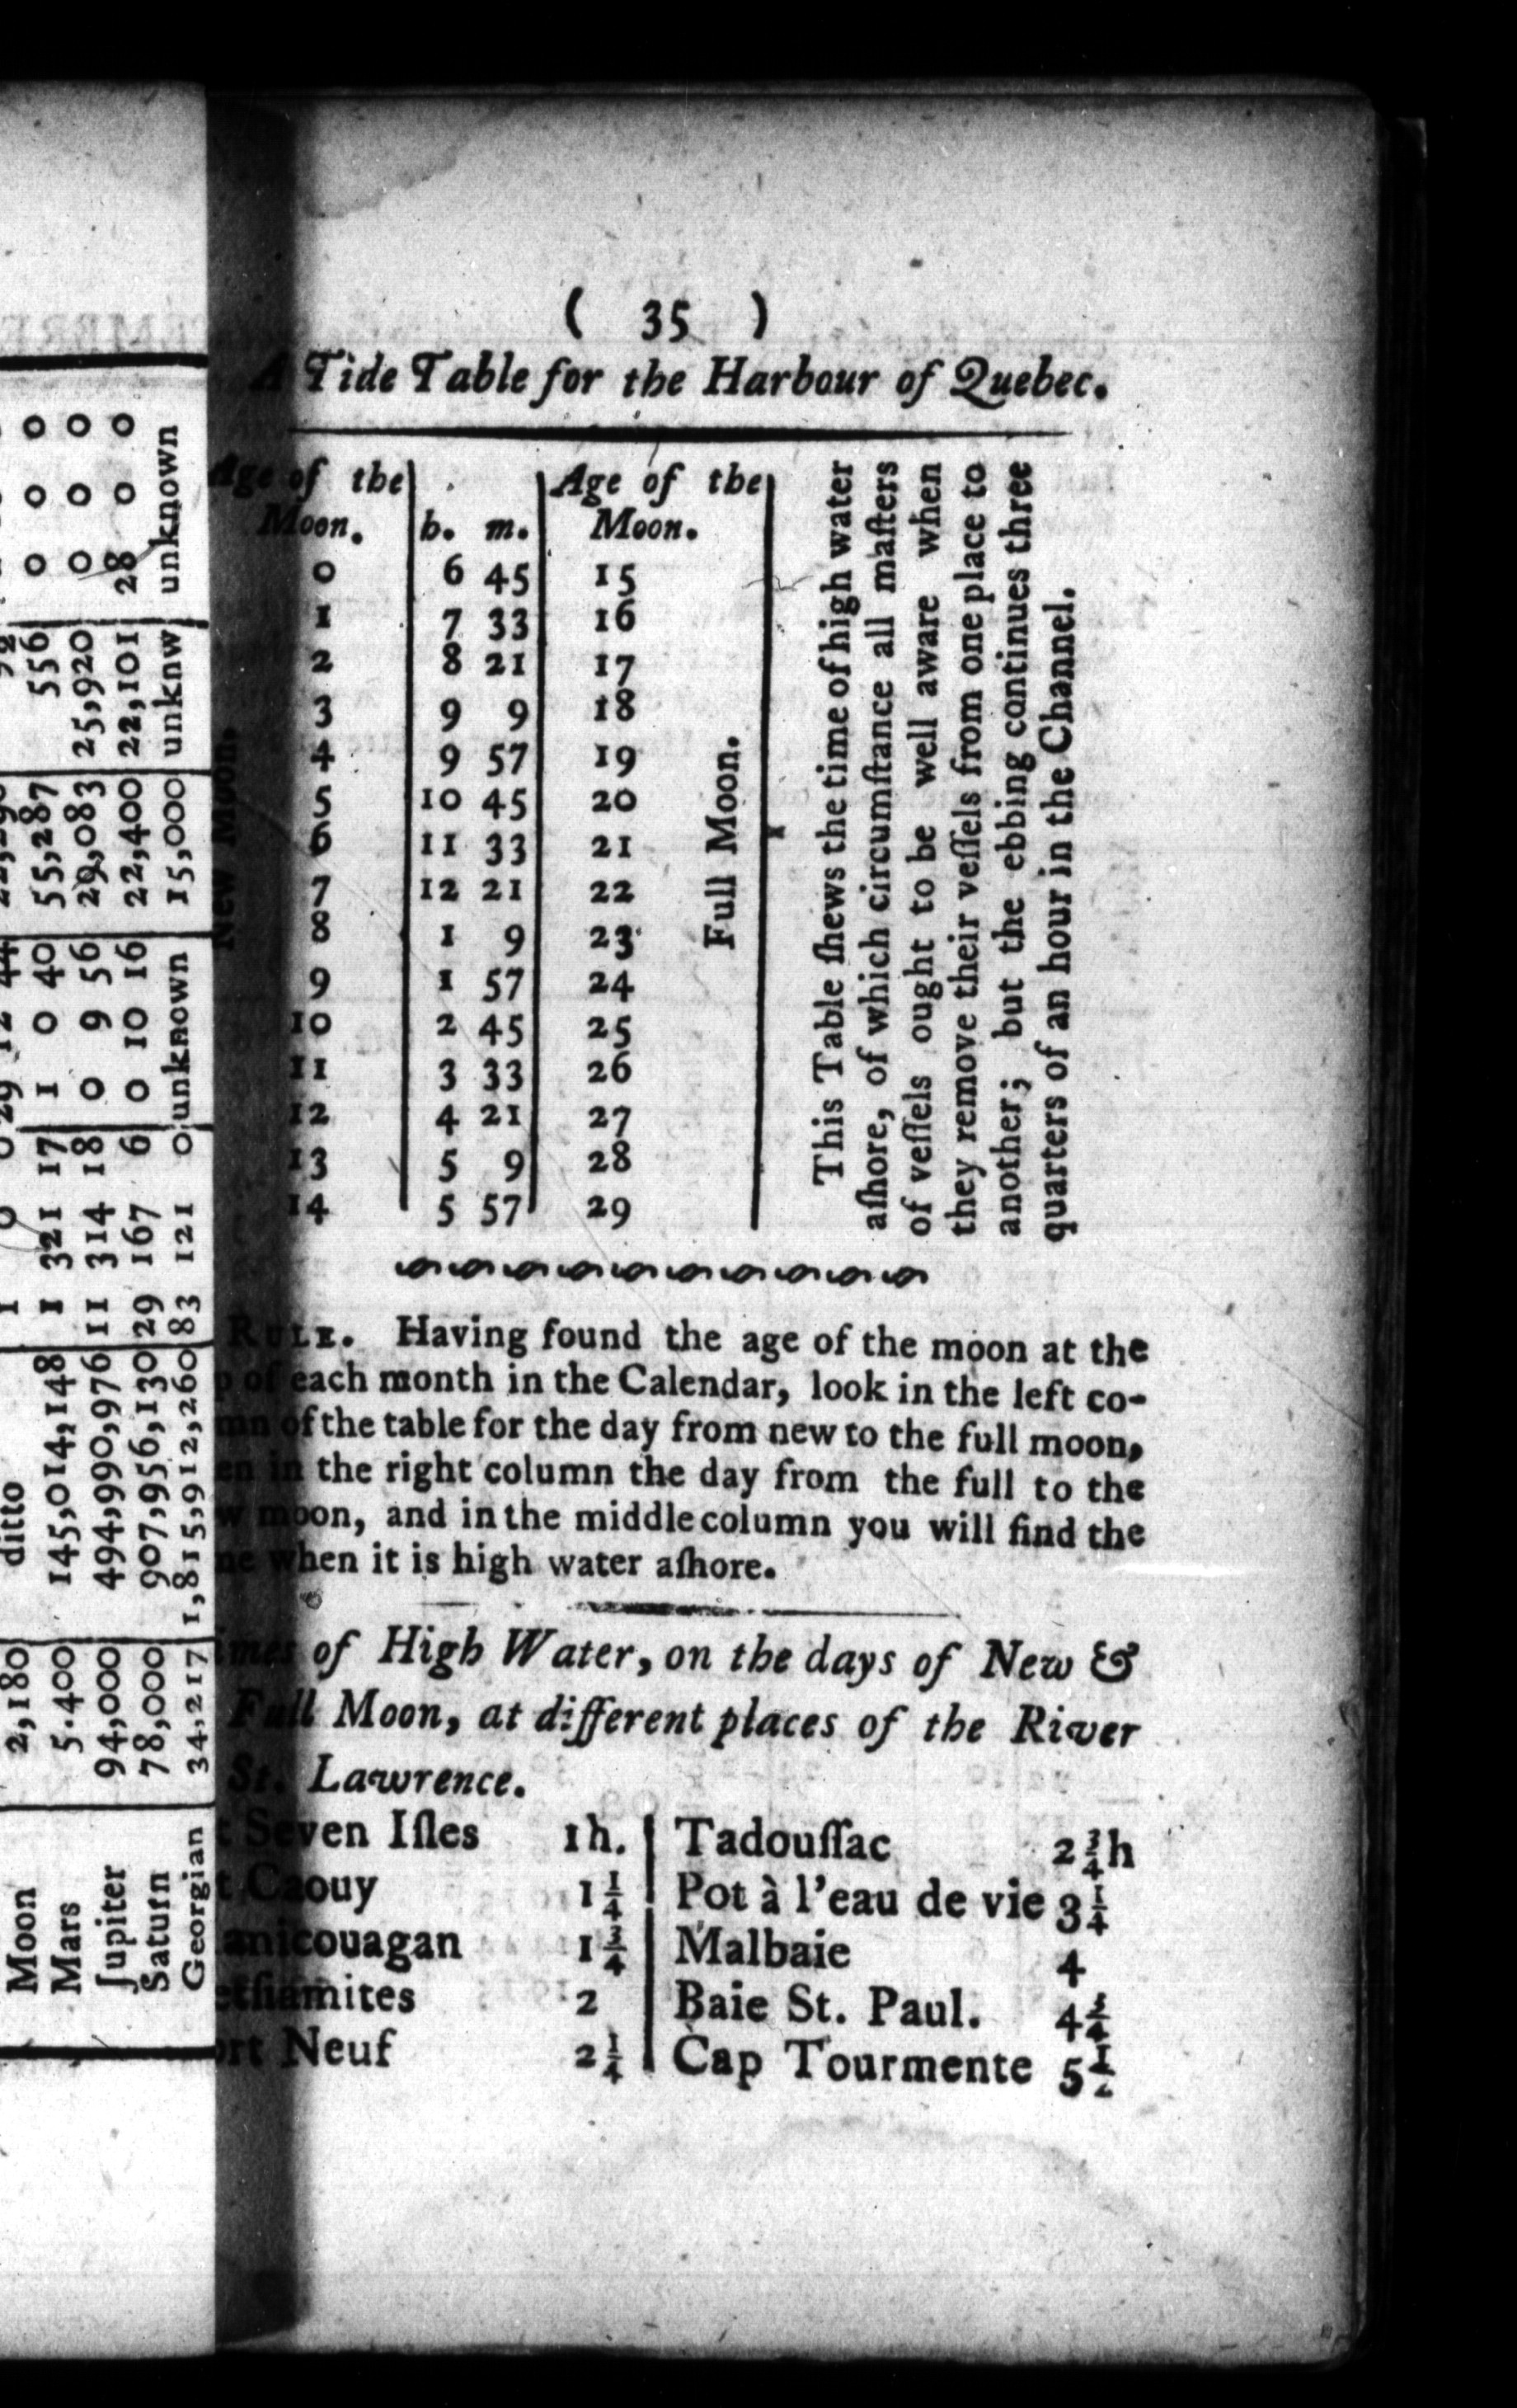 ( 35 )
A Tide Table for the Harbour of Quebec.
Age of the Moon. | h. m. | Age of the Moon.
0 | 6 45 | 15
1 | 7 33 | 16
2 | 8 21 | 17
3 | 9 9 | 18
4 | 9 57 | 19
5 | 10 45 | 20
6 | 11 33 | 21
7 | 12 21 | 22
8 | 1 9 | 23
9 | 1 57 | 24
10 | 2 45 | 25
11 | 3 33 | 26
12 | 4 21 | 27
13 | 5 9 | 28
14 | 5 57 | 29
New Moon.
Full Moon.
This Table ſhews the time of high water
aſhore, of which circumſtance all maſters
of veſſels ought to be well aware when
they remove their veſſels from one place to
another; but the ebbing continues three
quarters of an hour in the Channel.
RULE. Having found the age of the moon at the
of each month in the Calendar, look in the left co-
mn of the table for the day from new to the full moon,
en in the right column the day from the full to the
w moon, and in the middle column you will find the
ne when it is high water aſhore.
imes of High Water, on the days of New &
Full Moon, at different places of the River
St. Lawrence.
t Seven Iſles 1h. | Tadouſſac 2¾h
t Caouy 1¼ | Pot à l'eau de vie 3¼
anicouagan 1¾ | Malbaie 4
etſiamites 2 | Baie St. Paul. 4¾
ort Neuf 2¼ | Cap Tourmente 5½
Moon 2,180 ditto
Mars 5.400 145,014,148 1 321 17 1 0 40 55,287 556 0 0 0
Jupiter 94,000 494,990,976 11 314 18 0 9 56 29,083 25,920 0 0 0
Saturn 78,000 907,956,130 29 167 6 0 10 16 22,400 22,101 28 0 0
Georgian 34,217 1,815,912,260 83 121 0 unknown 15,000 unknw unknown